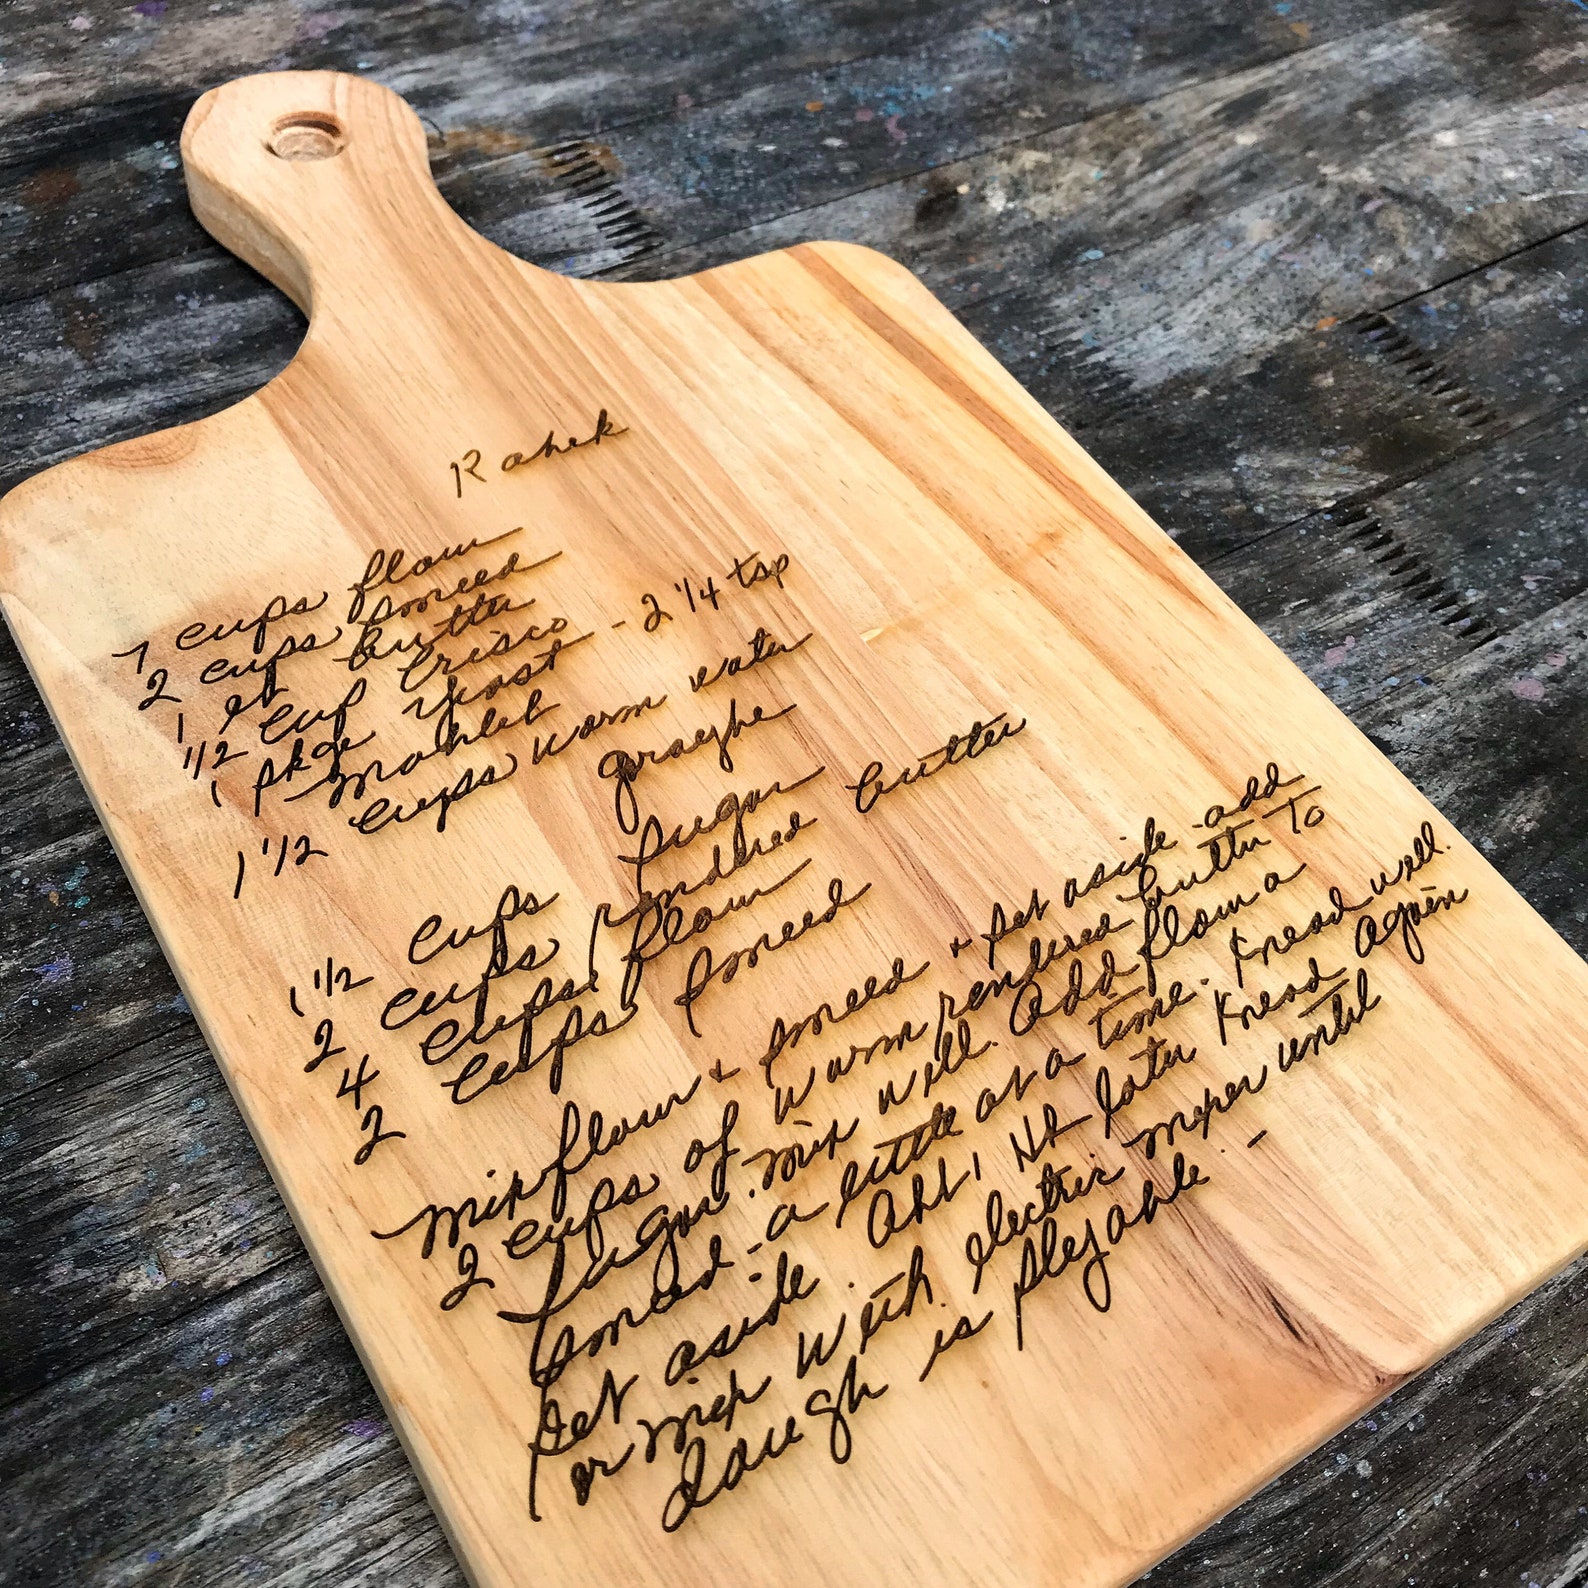 Kahek
7 cups flour
2 cups smeed
1 lb butter
1/2 cup Crisco
1 pkge yeast - 2 1/4 tsp
mahleb
1 1/2 cups warm water
graeybe
1 1/2 cups sugar
2 cups rendered butter
4 cups flour
2 cups smeed
Mix flour & smeed & set aside - add
2 cups of warm rendered butter to
sugar. Mix well. Add flour &
smeed - a little at a time. Knead well.
Set aside. later knead again
or mix with electric mixer until
dough is pleyable. -